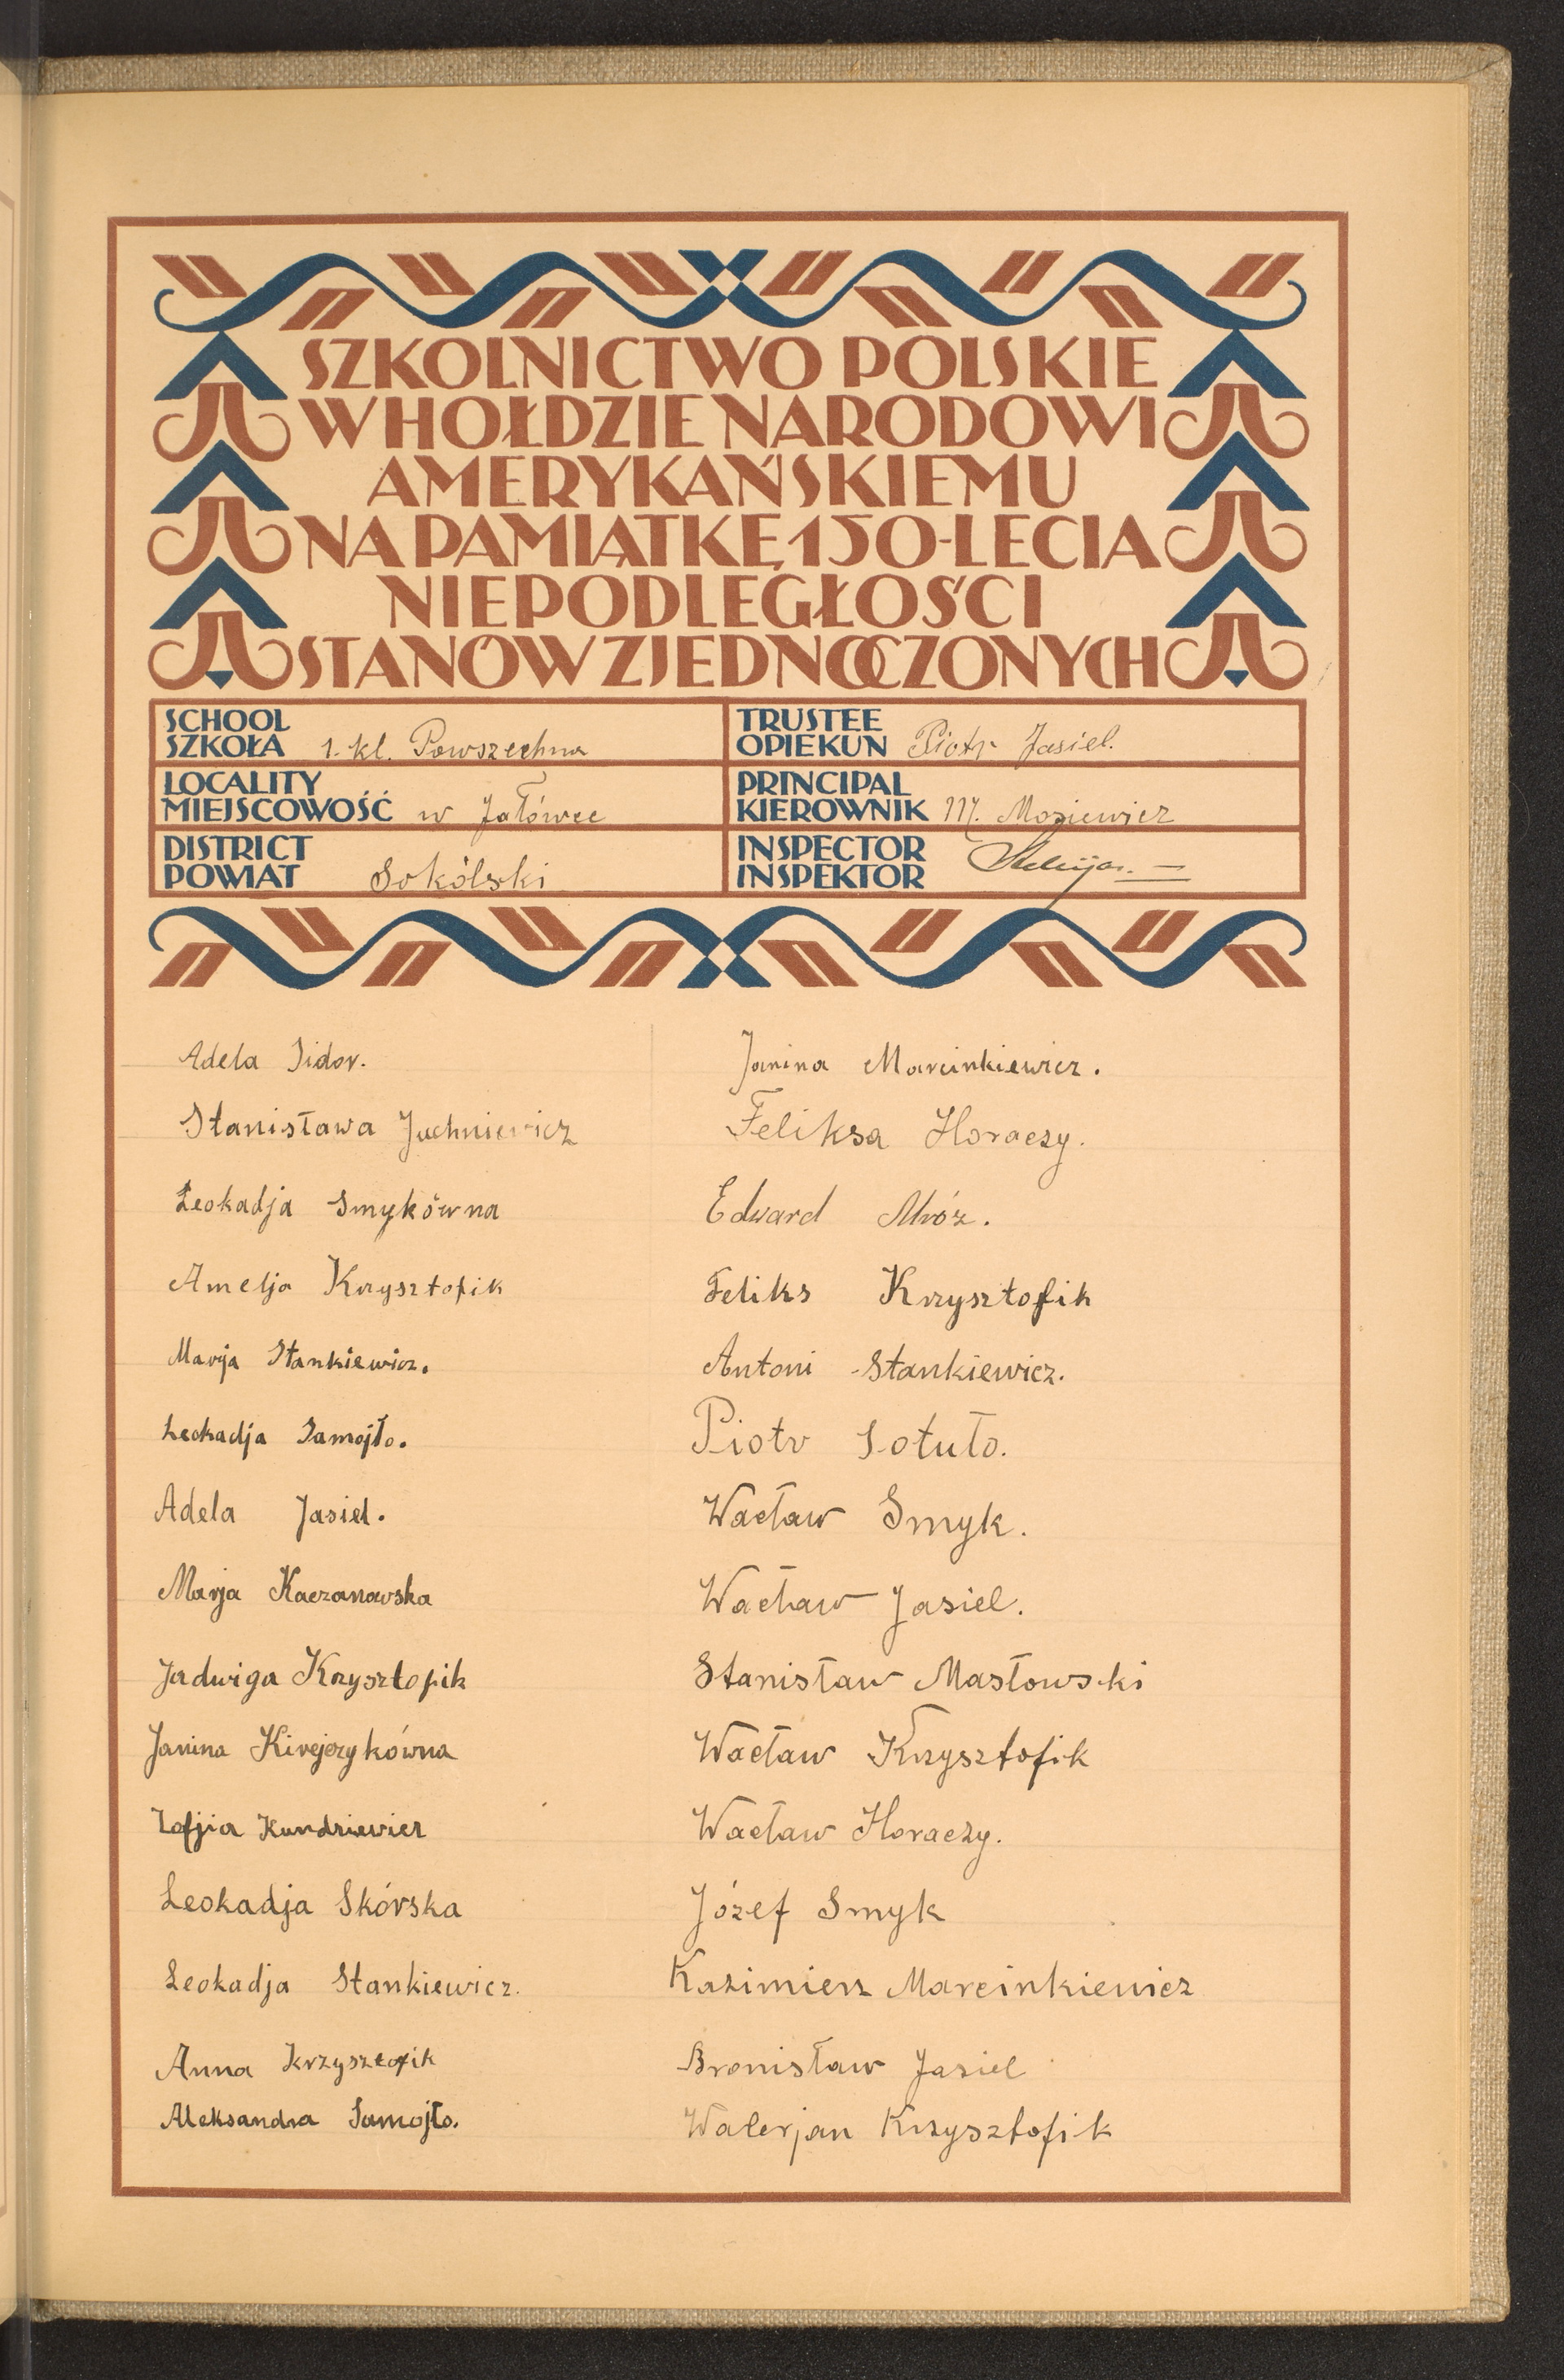 SZKOLNICTWO POLSKIE
W HOŁDZIE NARODOWI
AMERYKAŃSKIEMU
NA PAMIĄTKĘ 150-LECIA
NIEPODLEGŁOŚCI
STANÓW ZJEDNOCZONYCH
SCHOOL
SZKOŁA 1. kl. Powszechna
TRUSTEE
OPIEKUN Piotr Jasiel.
LOCALITY
MIEJSCOWOŚĆ w Jałówce
PRINCIPAL
KIEROWNIK M. Moziewicz
DISTRICT
POWIAT Sokólski
INSPECTOR
INSPEKTOR
Adela Sidor.
Janina Marcinkiewicz.
Stanisława Juchniewicz
Feliksa Horaczy.
Leokadja Smykówna
Edward Mróz.
Amelja Krzysztofik
Feliks Krzysztofik
Marja Stankiewicz.
Antoni Stankiewicz.
Leokadja Samojło.
Piotr Sotuło.
Adela Jasiel.
Wacław Smyk.
Marja Kaczanowska
Wacław Jasiel.
Jadwiga Krzysztofik
Stanisław Masłowski
Janina Kirejczykówna
Wacław Krzysztofik
Zofjia Kundziewicz
Wacław Horaczy.
Leokadja Skórska
Józef Smyk
Leokadja Stankiewicz.
Kazimierz Marcinkiewicz
Anna Krzysztofik
Bronisław Jasiel
Aleksandra Samojło.
Walerjan Krzysztofik